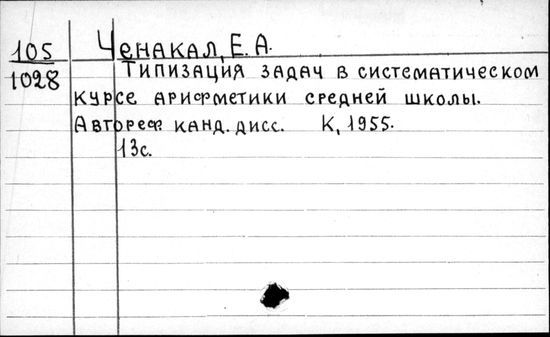 105 Ченакал, Е. А.
1028 Типизация задач в систематическом
курсе арифметики средней школы.
Автореф. канд. дисс. К, 1955.
13с.